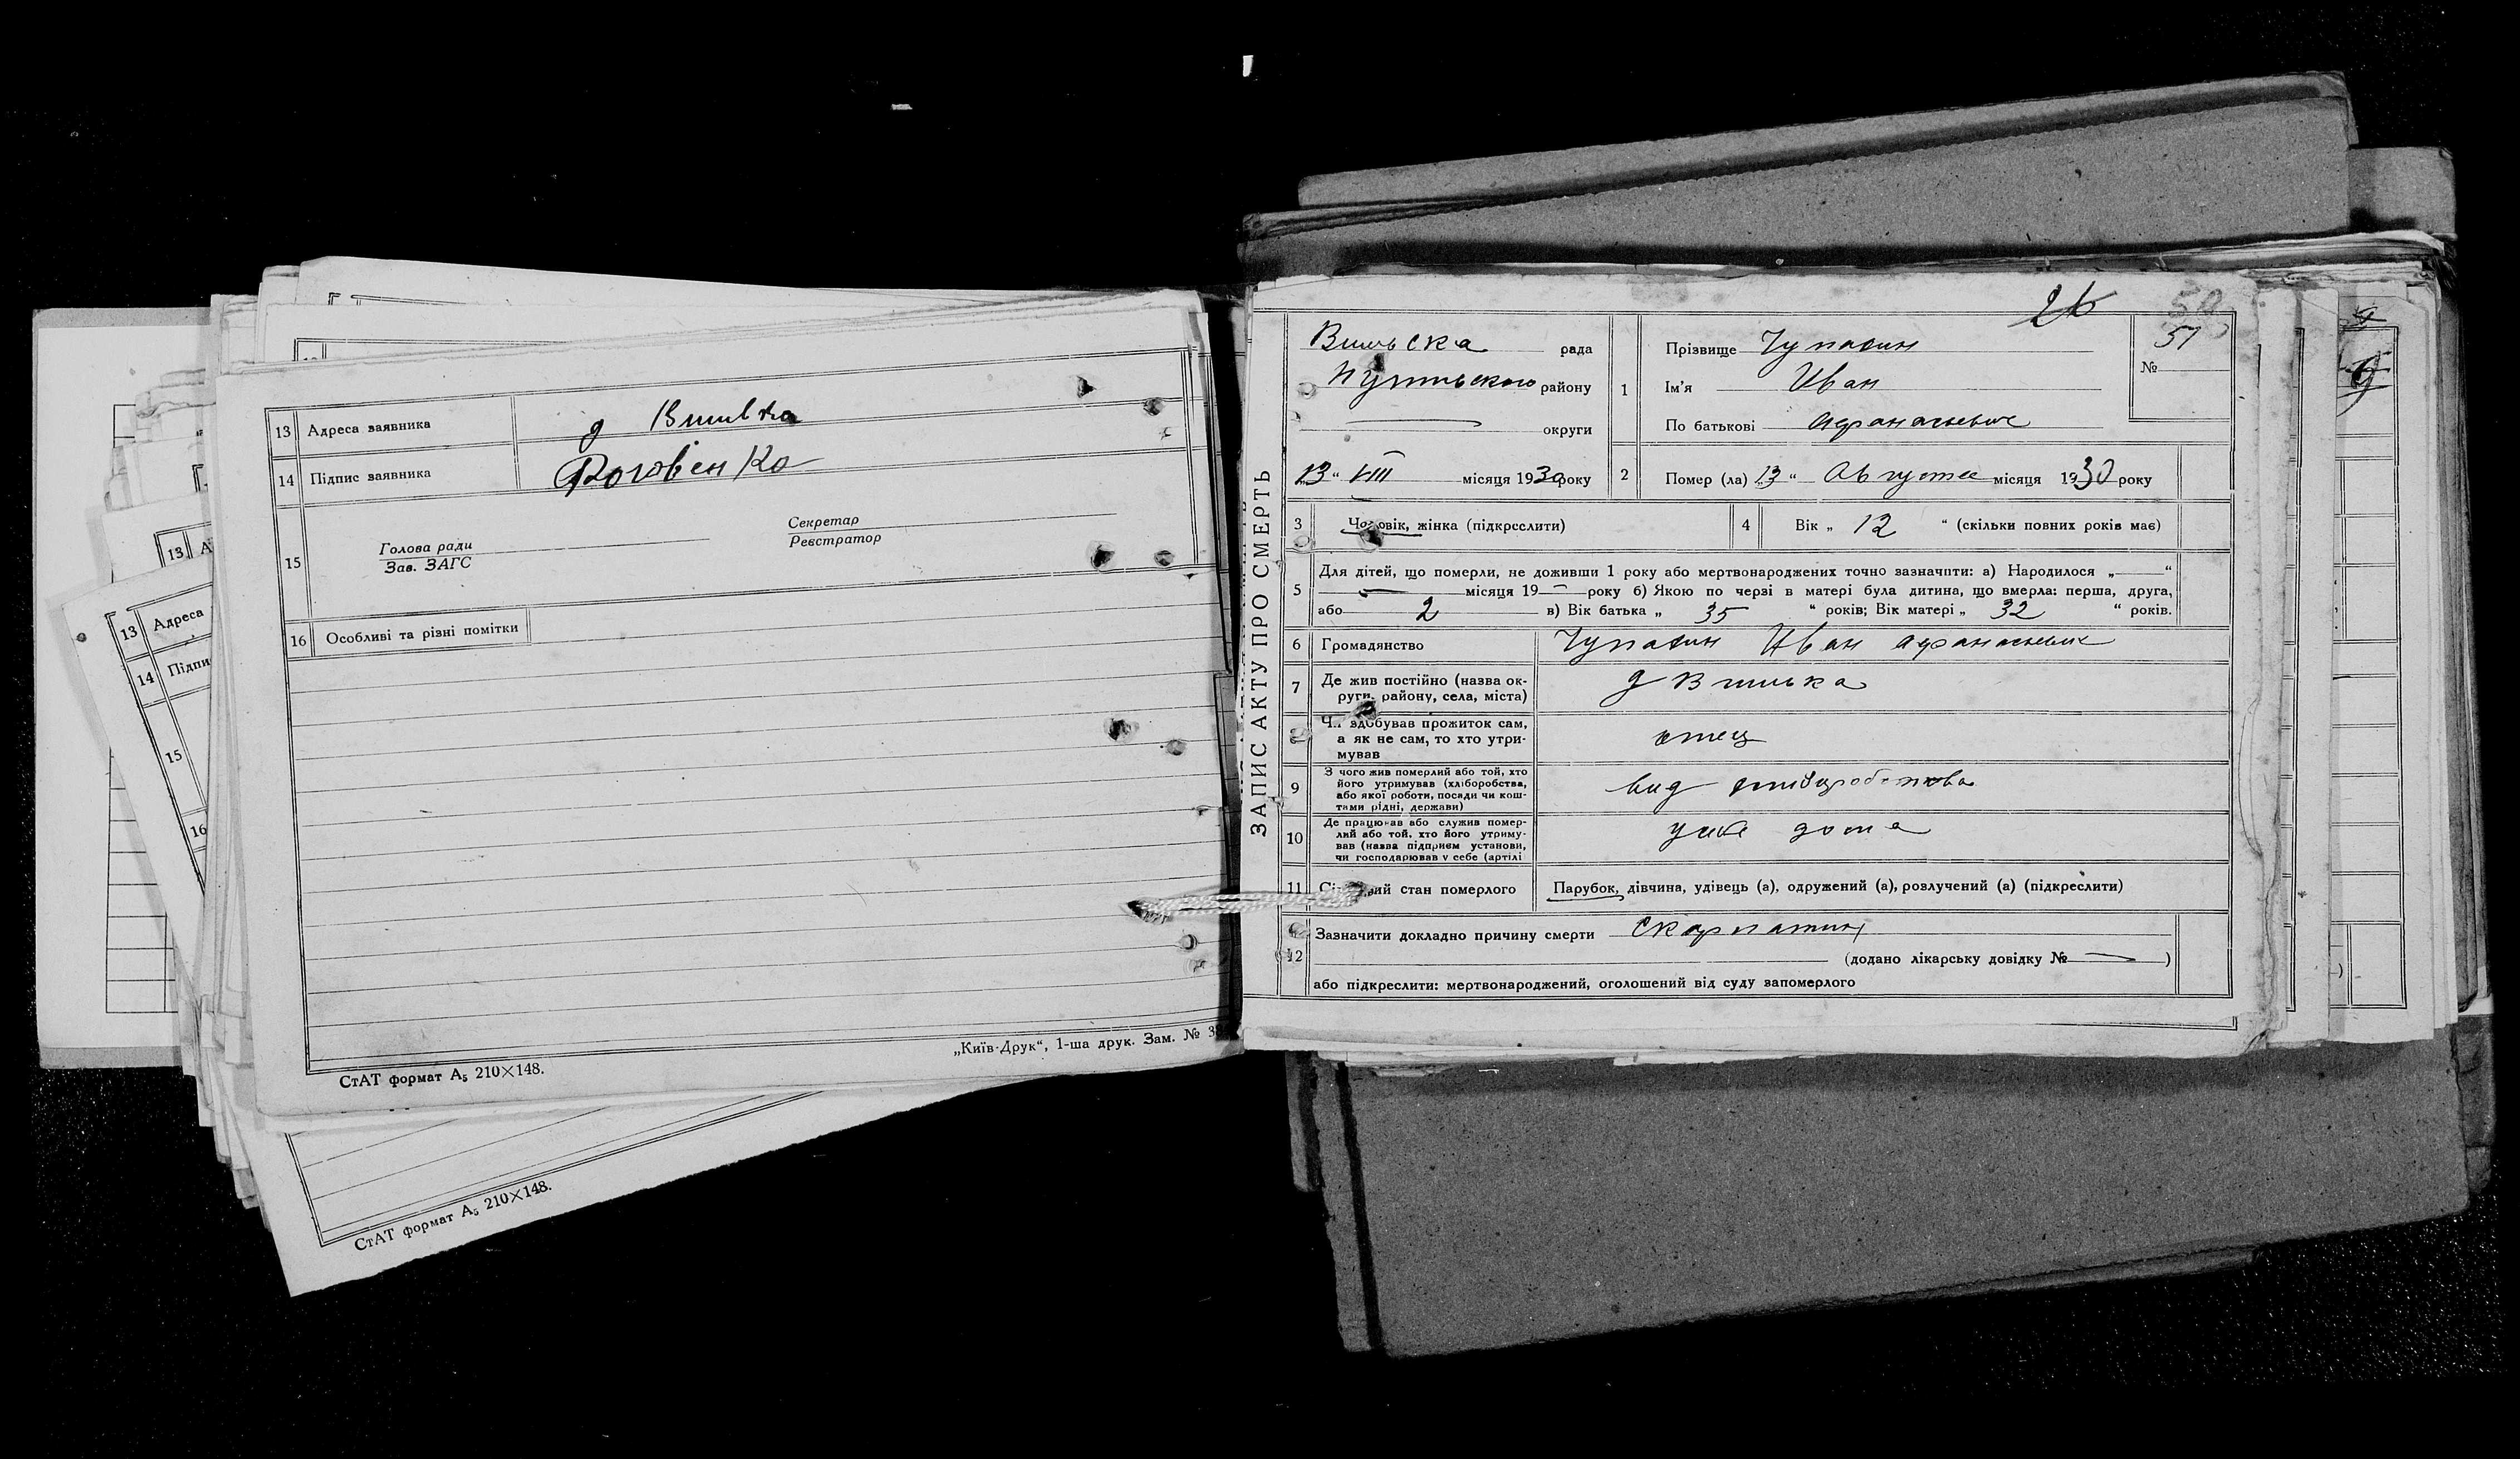 13 Адреса заявника д Вшивка
14 Підпис заявника Роговенко
15 Голова ради
Зав. ЗАГС
Секретар
Реєстратор
16 Особливі та різні помітки
„Київ-Друк“, 1-ша друк. Зам. №
СтАТ формат А5 210×148.
СтАТ формат А5 210×148.
13 Адреса
14
15
16
26
ЗАПИС АКТУ ПРО СМЕРТЬ
рада
району
округи
13 “ VIII місяця 1930 року
1 Прізвище
Ім'я Иван
По батькові Афанасьевич
51
№
2 Помер (ла) 13 “ Августа місяця 1930 року
3 Чоловік, жінка (підкреслити)
4 Вік „ 12 “ (скільки повних років має)
5 Для дітей, що померли, не доживши 1 року або мертвонароджених точно зазначити: а) Народилося „ — “
— місяця 19 — року б) Якою по черзі в матері була дитина, що вмерла: перша, друга,
або 2 в) Вік батька „ 35 “ років; Вік матері „ 32 “ років.
6 Громадянство Иван Афанасьевич
7 Де жив постійно (назва ок-
руги, району, села, міста) д
Чи здобував прожиток сам,
а як не сам, то хто утри-
мував отец
9 З чого жив померлий або той, хто
його утримував (хліборобства,
або якої роботи, посади чи кош-
тами рідні, держави) вид
10 Де працював або служив помер-
лий або той, хто його утриму-
вав (назва підприєм установи,
чи господарював у себе (артілі дома
11 Сімейний стан померлого Парубок, дівчина, удівець (а), одружений (а), розлучений (а) (підкреслити)
12 Зазначити докладно причину смерти Скарлатин
(додано лікарську довідку № — )
або підкреслити: мертвонароджений, оголошений від суду запомерлого